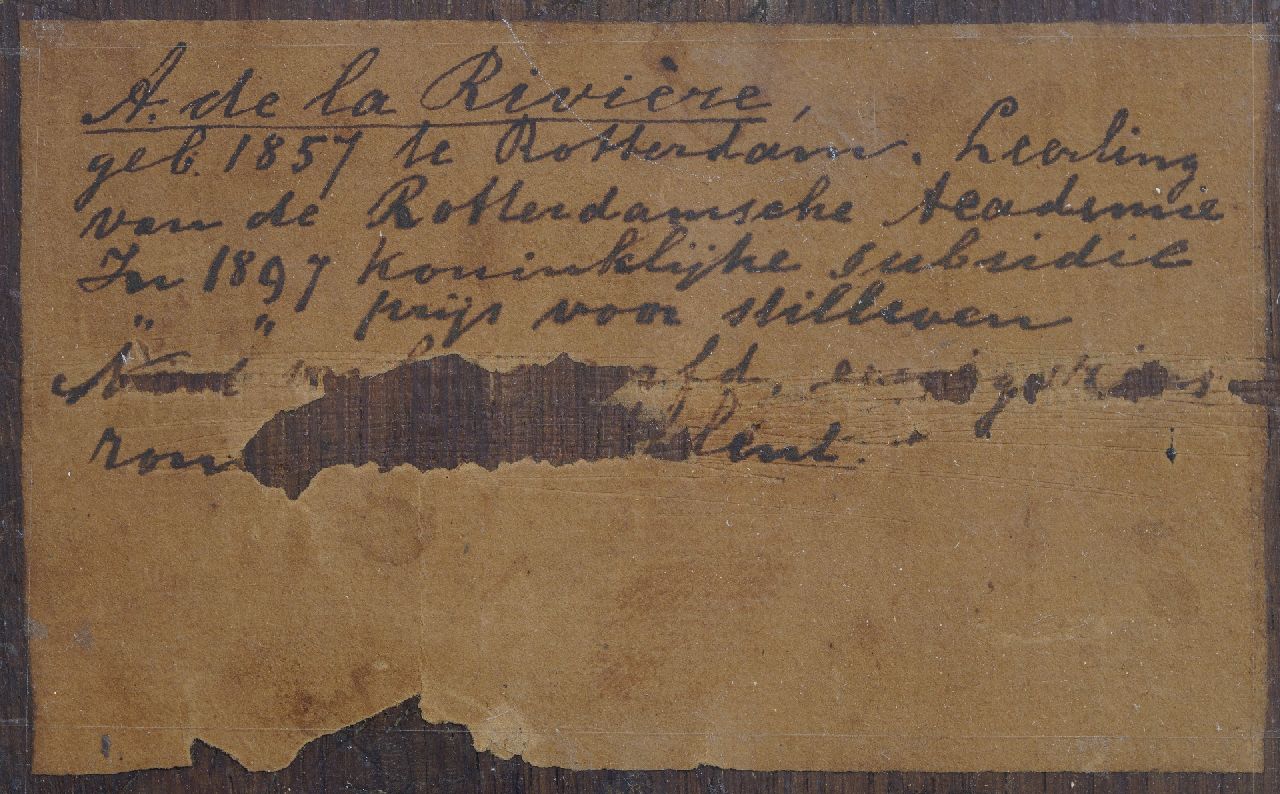 A. de la Rivière,
geb. 1857 te Rotterdam. Leerling
van de Rotterdamsche Academie
In 1897 Koninklijke subsidie
" " prijs voor stilleven